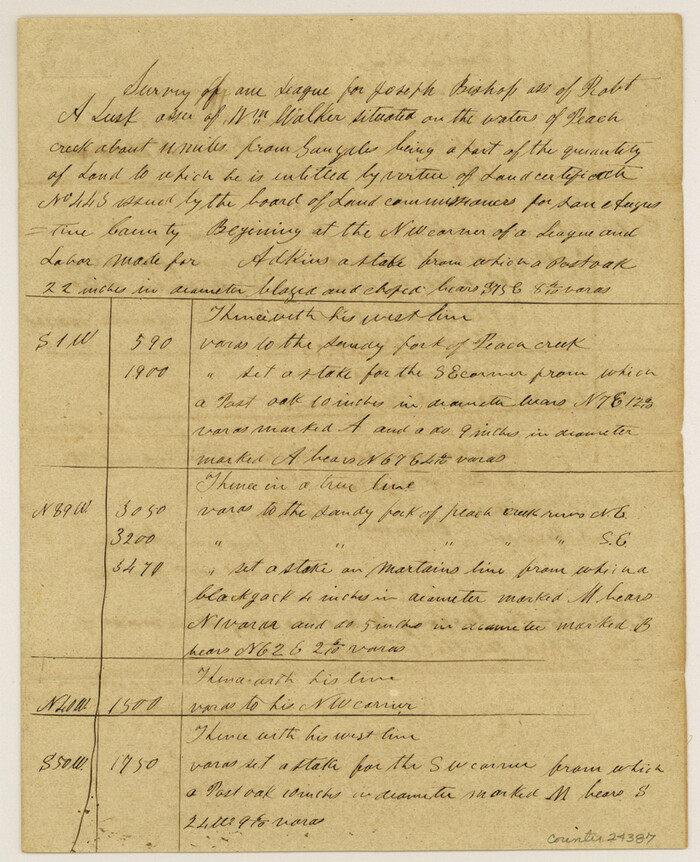 Survey of one League for Joseph Bishop ass of Robt
A Lusk assee of Wm Walker situated on the waters of Peach
creek about 11 miles from Gonzales being a part of the quantity
of Land to which he is entitled by virtue of Land certificate
No 445 issued by the board of Land commissioners for San Augus
=tine County Begining at the NW corner of a League and
Labor made for Adkins a stake from which a Post oak
22 inches in diameter blazed and choped bears S75E 8 varas
Thence with his west line
S1W 590 varas to the Sandy fork of Peach creek
1900 " set a stake for the SE corner from which
a Post oak 10 inches in diameter bears N7E 12
varas marked A and a do 9 inches in diameter
marked A bears N67E 4 varas
Thence in a true line
N89W 3050 varas to the Sandy fork of peach creek runs N.E.
3200 " " " " " S.E
3470 " set a stake on Martains line from which a
blackjack 4 inches in diameter marked M bears
N1 varas and do 5 inches in diameter marked B
bears N62E 2 varas
Thence with his line
N40W 1500 varas to his NW corner
Thence with his west line
S50W. 1750 varas set a stake for the SW corner from which
a Post oak 10 inches in diameter marked M bears S
24W 9 varas
Counter 24387